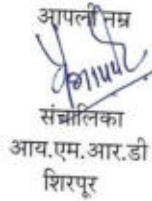 आपली नम्र
संचालिका
आय.एम.आर.डी
शिरपूर